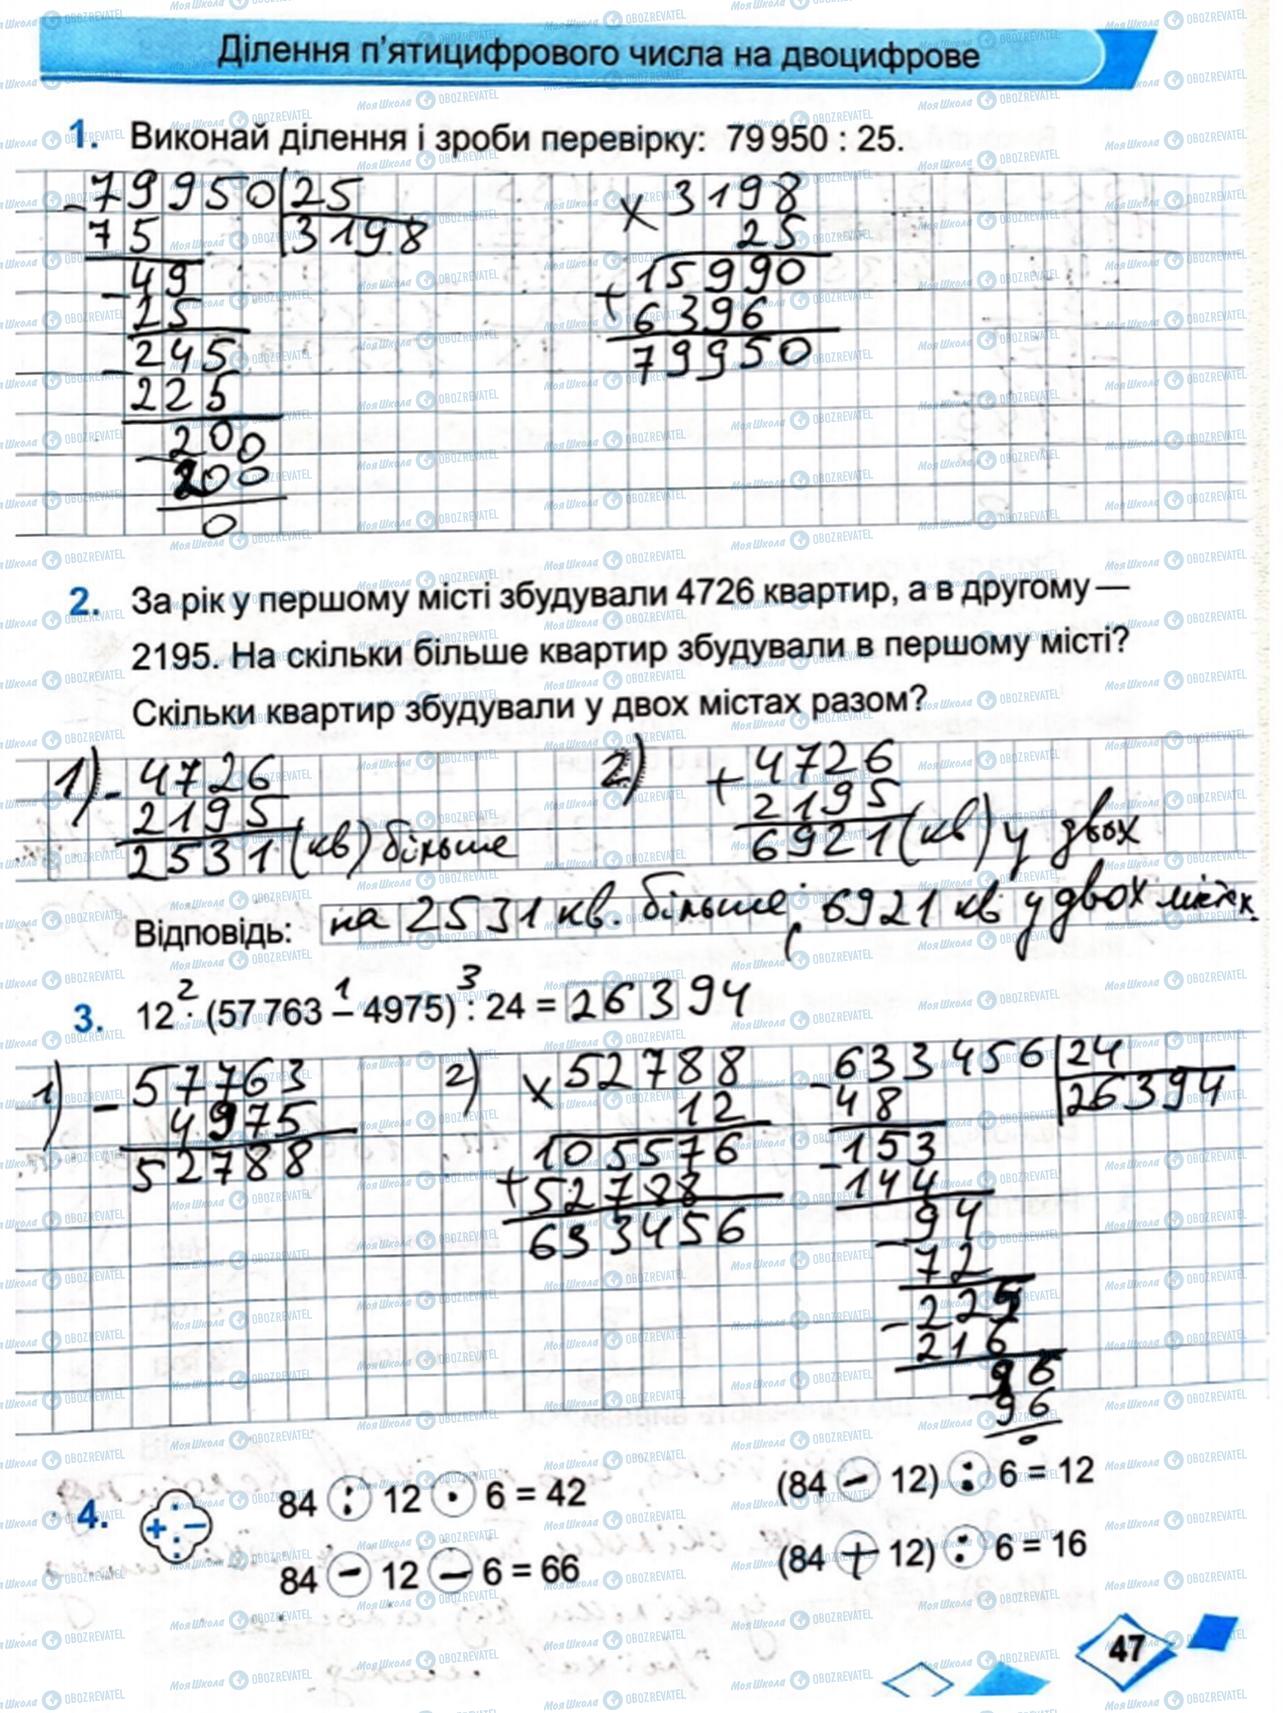 Ділення п'ятицифрового числа на двоцифрове
1. Виконай ділення і зроби перевірку: 79 950 : 25.
- 79950 | 25
75 | 3198
- 49
25
- 245
225
- 200
200
0
× 3198
25
+ 15990
6396
79950
2. За рік у першому місті збудували 4726 квартир, а в другому —
2195. На скільки більше квартир збудували в першому місті?
Скільки квартир збудували у двох містах разом?
1) - 4726
2195
2531 (кв) більше
2) + 4726
2195
6921 (кв) у двох
Відповідь: на 2531 кв. більше, 6921 кв у двох містах
3. 12 · (57 763 – 4975) : 24 = 26394
2 1 3
1) - 57763
4975
52788
2) × 52788
12
+ 105576
52788
633456
- 633456 | 24
48 | 26394
- 153
144
- 94
72
- 225
216
96
96
0
4. + · – :
84 : 12 · 6 = 42
(84 – 12) : 6 = 12
84 – 12 – 6 = 66
(84 + 12) : 6 = 16
47
Моя Школа OBOZREVATEL